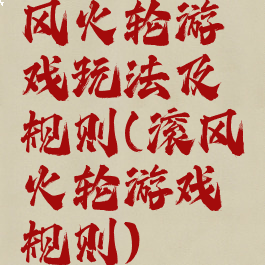 风火轮游
戏玩法及
规则(滚风
火轮游戏
规则)